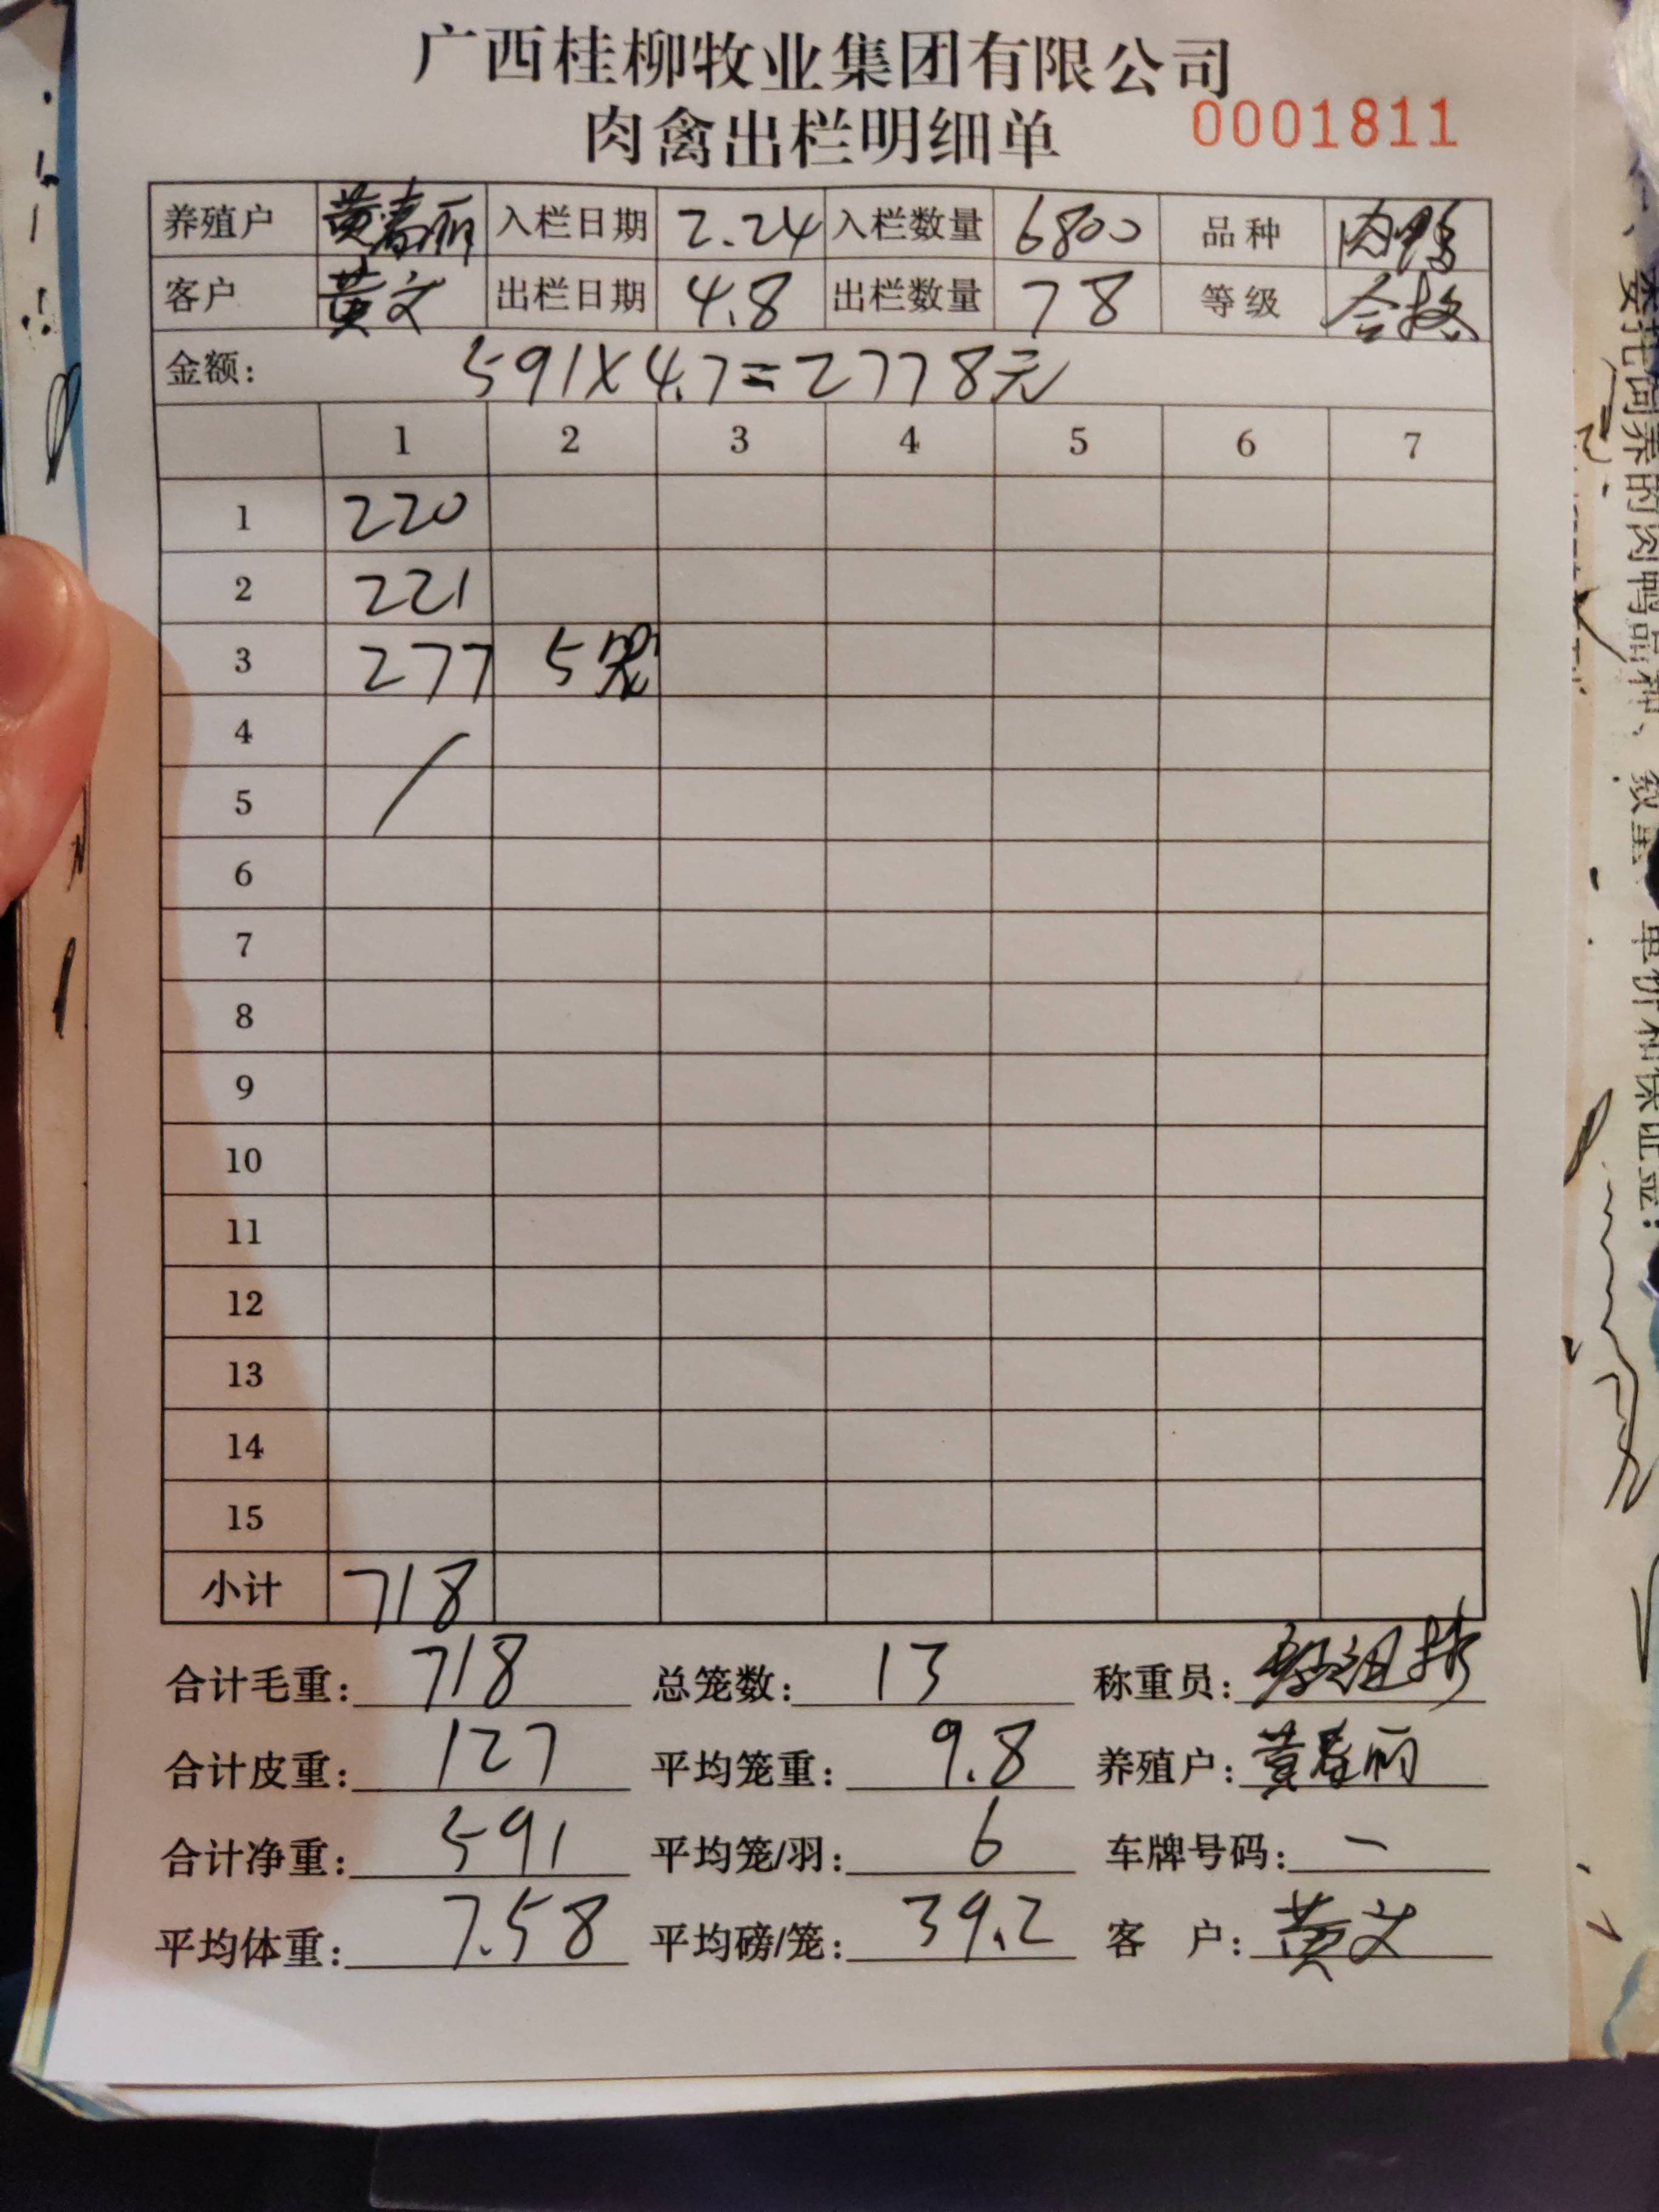 广西桂柳牧业集团有限公司
肉禽出栏明细单 0001811
养殖户 黄春丽 入栏日期 2.24 入栏数量 6800 品种 肉鸭
客户 黄文 出栏日期 4.8 出栏数量 78 等级 合格
金额: 591×4.7=2778元
1 2 3 4 5 6 7
1 220
2 221
3 277 5笼
4
5
6
7
8
9
10
11
12
13
14
15
小计 718
合计毛重: 718 总笼数: 13 称重员:
合计皮重: 127 平均笼重: 9.8 养殖户: 黄春丽
合计净重: 591 平均笼/羽: 6 车牌号码: 一
平均体重: 7.58 平均磅/笼: 39.2 客 户: 黄文
委托饲养的肉鸭品种、数量、单价和保证金: